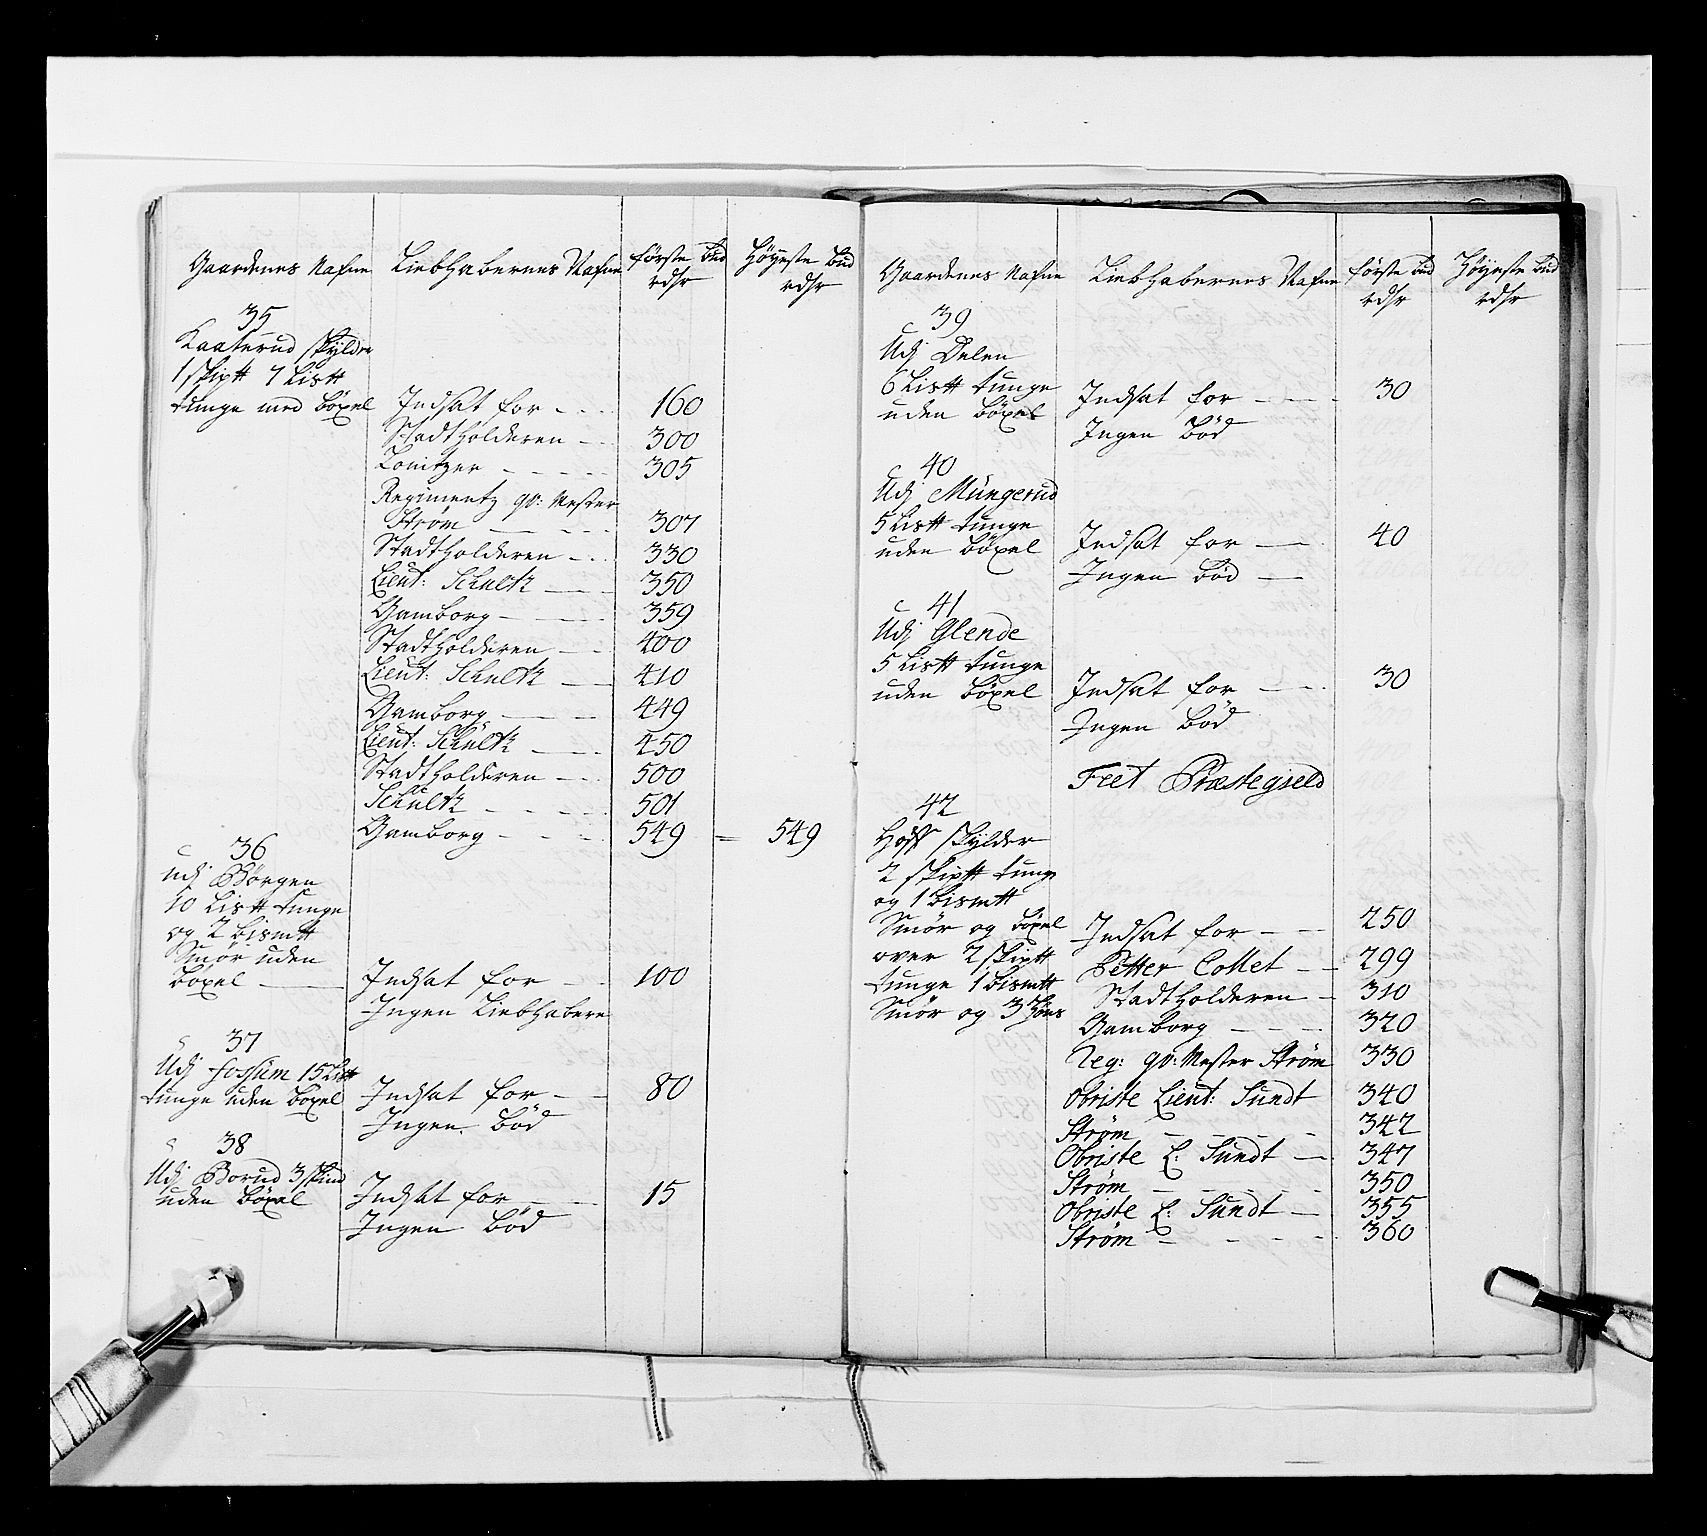 Gaardenes Nafne Liebhabernes Nafne første bud rdlr Høyeste bud rdlr
35
Kaaterud skylder
1 skip℔ 7 Lis℔
tunge med böxel Indsat for 160
Stadtholderen 300
Lonitzer 305
Regimentz qv: Mester
Strøm 307
Stadtholderen 330
Lieut: Schultz 350
Gamborg 359
Stadtholderen 400
Lieut: Schultz 410
Gamborg 449
Lieut: Schultz 450
Stadtholderen 500
Schultz 501
Gamborg 549 = 549
36
Udj Börgen
10 Lis℔ tunge
og 2 bism℔
Smör uden
böxel Indsat for 100
Ingen Liebhabere
37
Udj fossum 15 Lis℔
tunge uden böxel Indsat for 80
Ingen böd
38
Udj Borud 3 skind
uden böxel Indsat for 15
Ingen böd
Gaardenes Nafne Liebhabernes Nafne første bud rdlr Høyeste bud rdlr
39
Udj Delen
6 Lis℔ tunge Indsat for 30
uden böxel
Ingen böd
40
Udj Müngerud
5 Lis℔ tunge
uden böxel Indsat for 40
Ingen böd
41
Udj Glende
5 Lis℔ tunge
uden böxel Indsat for 30
Ingen böd
Feet Præstegield
42
Hoff skylder
2 skip℔ tunge
og 1 bism℔
Smör og böxel Indsat for 250
over 2 skip℔ Petter Collet 299
tunge 1 bism℔ Stadtholderen 310
Smör og 3 Gamborg 320
Reg: qv: Mester Strøm 330
Obriste Lieut: Sundt 340
Strøm 342
Obriste L: Sundt 347
Strøm 350
Obriste L: Sundt 355
Strøm 360